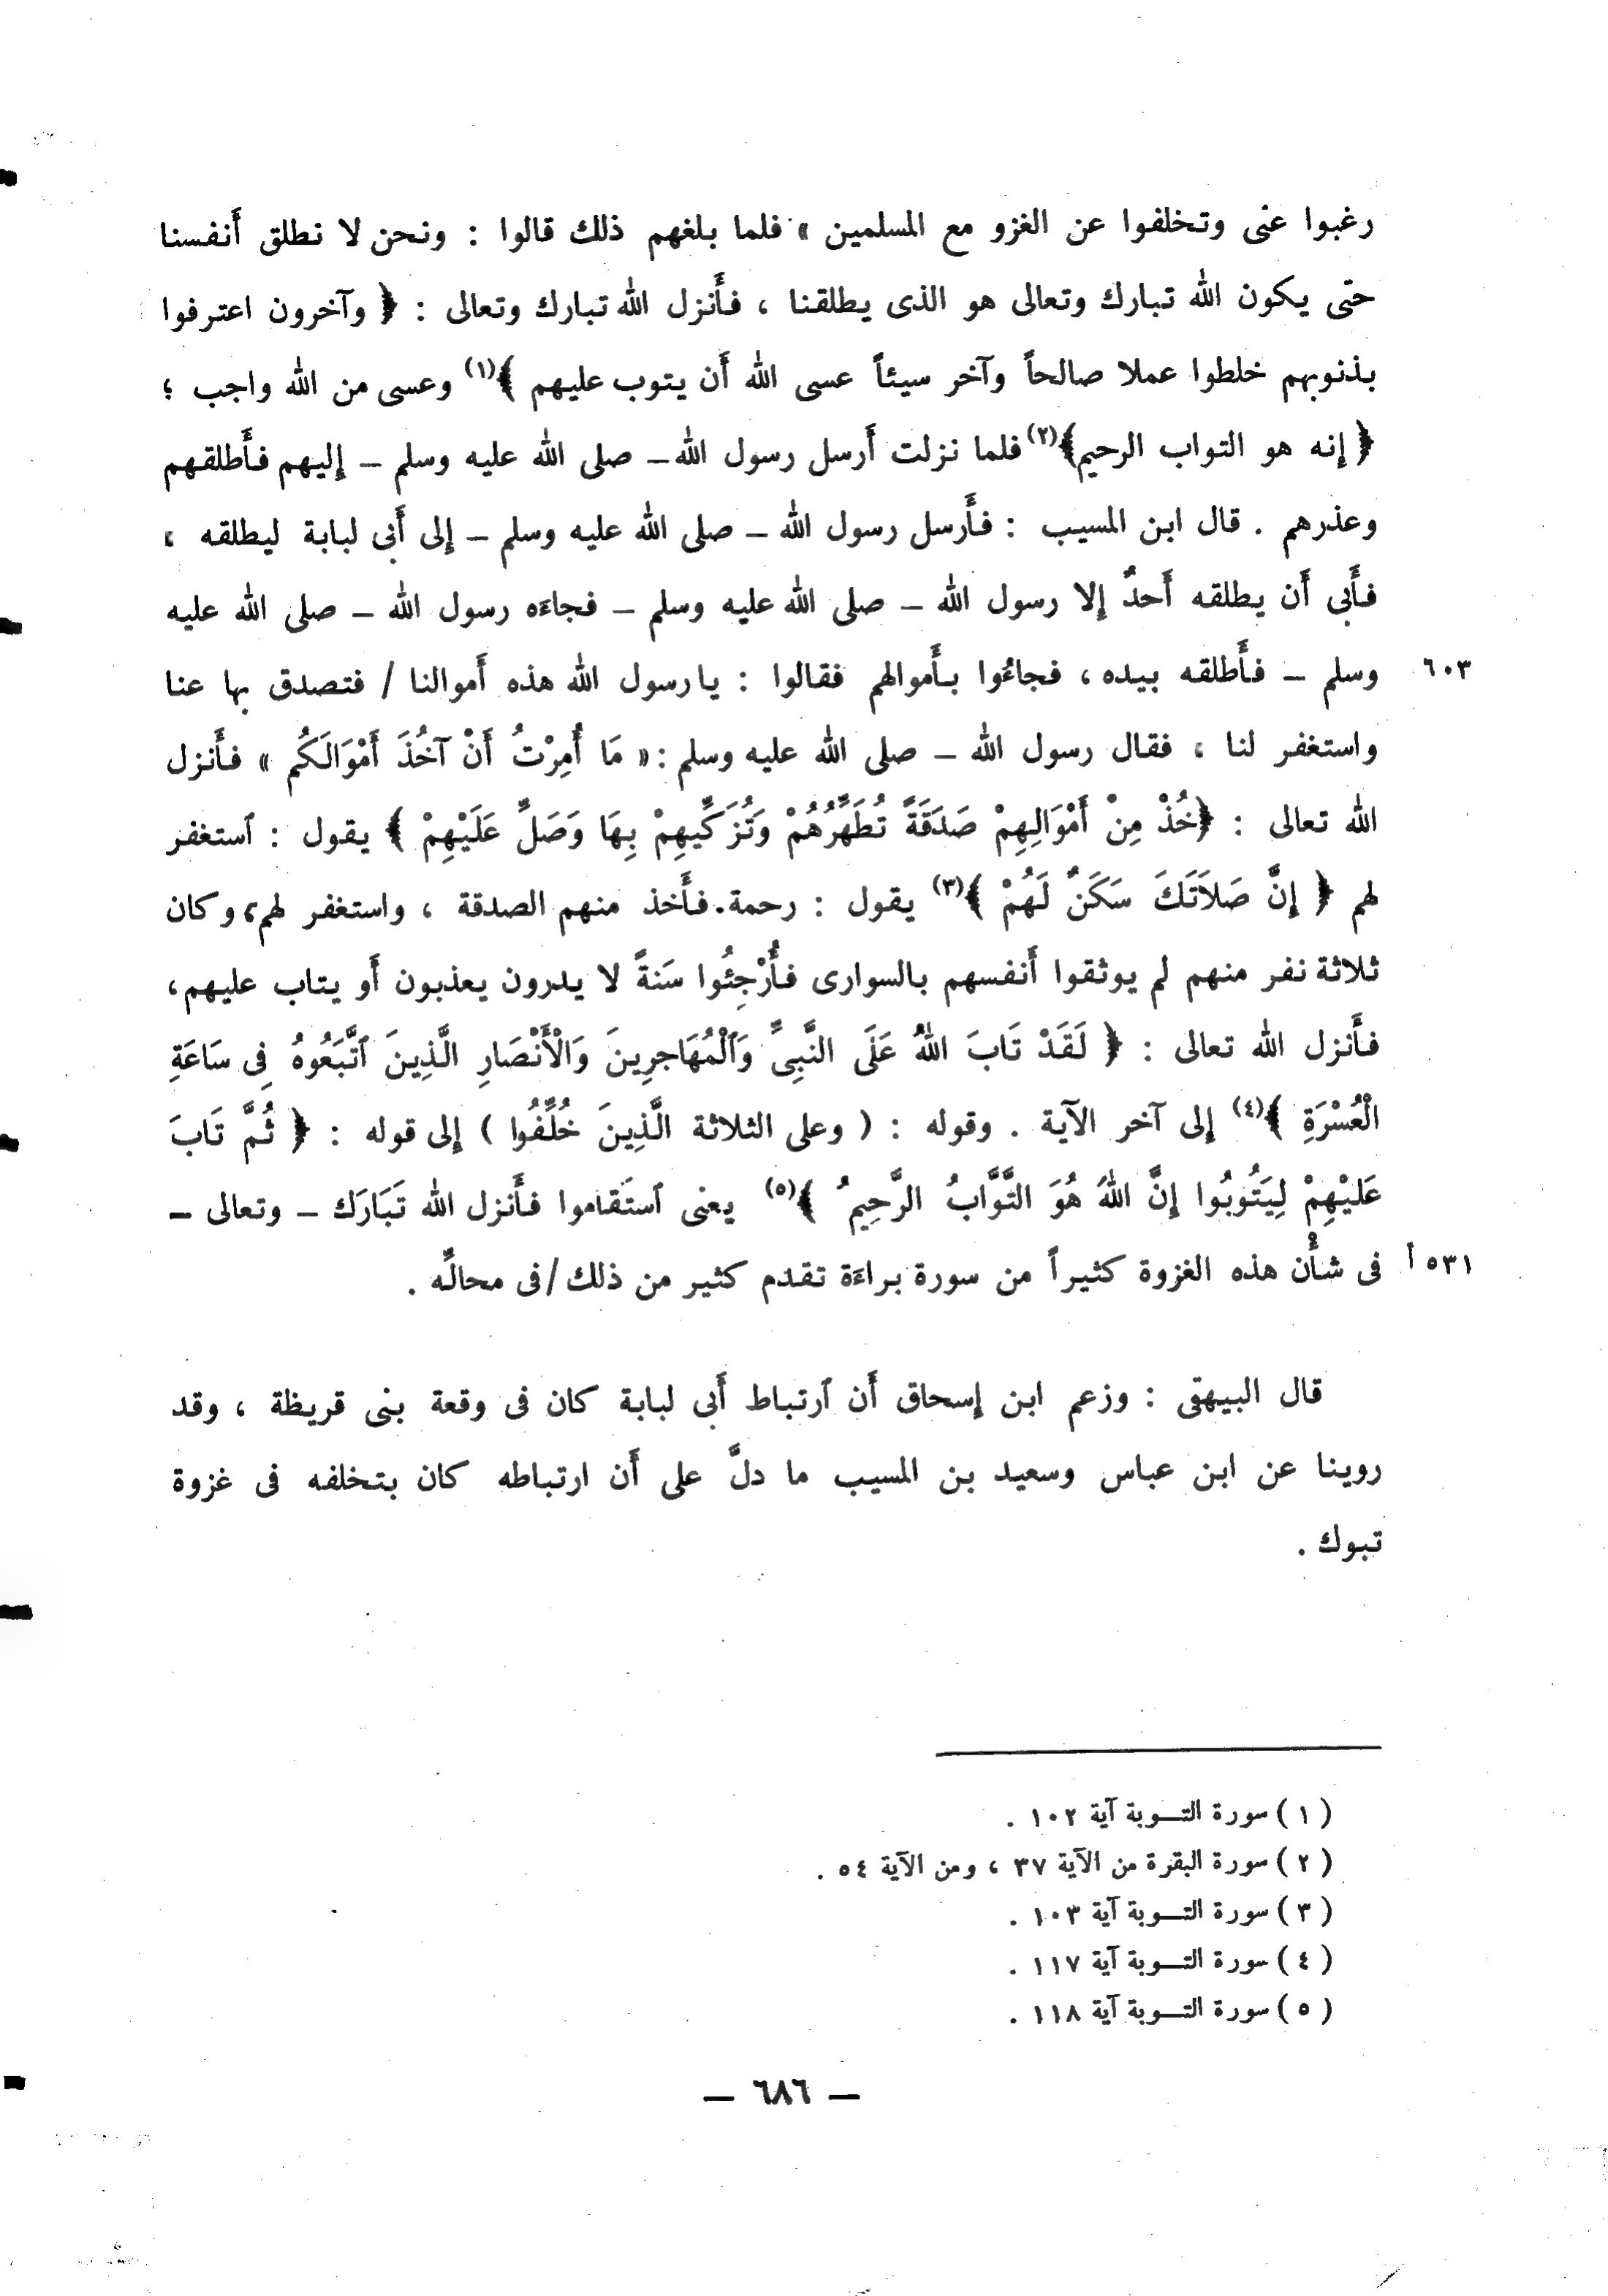 رغبوا عنى وتخلفوا عن الغزو مع المسلمين » فلما بلغهم ذلك قالوا : ونحن لا نطلق أَنفسنا
حتى يكون الله تبارك وتعالى هو الذى يطلقنا ، فأَنزل الله تبارك وتعالى : ﴿ وآخرون اعترفوا
بذنوبهم خلطوا عملا صالحاً وآخر سيئاً عسى الله أَن يتوب عليهم ﴾(١) وعسى من الله واجب ؛
﴿ إنه هو التواب الرحيم﴾(٢) فلما نزلت أَرسل رسول الله – صلى الله عليه وسلم – إليهم فأَطلقهم
وعذرهم . قال ابن المسيب : فأَرسل رسول الله – صلى الله عليه وسلم – إلى أَبى لبابة ليطلقه ،
فأَبى أَن يطلقه أَحدٌ إلا رسول الله – صلى الله عليه وسلم – فجاءَه رسول الله – صلى الله عليه
وسلم – فأَطلقه بيده ، فجاءُوا بأَموالهم فقالوا : يا رسول الله هذه أَموالنا / فتصدق بها عنا ٦٠٣
واستغفر لنا ، فقال رسول الله – صلى الله عليه وسلم : « مَا أُمِرْتُ أَنْ آخُذَ أَمْوَالَكُم » فأَنزل
الله تعالى : ﴿خُذْ مِنْ أَمْوَالِهِمْ صَدَقَةً تُطَهِّرُهُمْ وَتُزَكِّيهِمْ بِهَا وَصَلِّ عَلَيْهِمْ ﴾ يقول : ٱستغفر
لهم ﴿ إِنَّ صَلاَتَكَ سَكَنٌ لَهُمْ ﴾(٣) يقول : رحمة. فأَخذ منهم الصدقة ، واستغفر لهم، وكان
ثلاثة نفر منهم لم يوثقوا أَنفسهم بالسوارى فأُرْجِئُوا سَنةً لا يدرون يعذبون أَو يتاب عليهم،
فأَنزل الله تعالى : ﴿ لَقَدْ تَابَ اللهُ عَلَى النَّبِىِّ وَٱلْمُهَاجِرِينَ وَالْأَنْصَارِ الَّذِينَ ٱتَّبَعُوهُ فِى سَاعَةِ
الْعُسْرَةِ ﴾(٤) إلى آخر الآية . وقوله : ( وعلى الثلاثة الَّذِينَ خُلِّفُوا ) إلى قوله : ﴿ ثُمَّ تَابَ
عَلَيْهِمْ لِيَتُوبُوا إِنَّ اللهَ هُوَ التَّوَّابُ الرَّحِيمُ ﴾(٥) يعنى ٱستَقاموا فأَنزل الله تَبَارَك – وتعالى –
فى شأْن هذه الغزوة كثيراً من سورة براءَة تقدم كثير من ذلك / فى محالِّه . ٥٣١ أ
قال البيهقى : وزعم ابن إسحاق أَن ٱرتباط أَبى لبابة كان فى وقعة بنى قريظة ، وقد
روينا عن ابن عباس وسعيد بن المسيب ما دلَّ على أَن ارتباطه كان بتخلفه فى غزوة
تبوك .
( ١ ) سورة التـــوبة آية ١٠٢ .
( ٢ ) سورة البقرة من الآية ٣٧ ، ومن الآية ٥٤ .
( ٣ ) سورة التـــوبة آية ١٠٣ .
( ٤ ) سورة التـــوبة آية ١١٧ .
( ٥ ) سورة التـــوبة آية ١١٨ .
– ٦٨٦ –